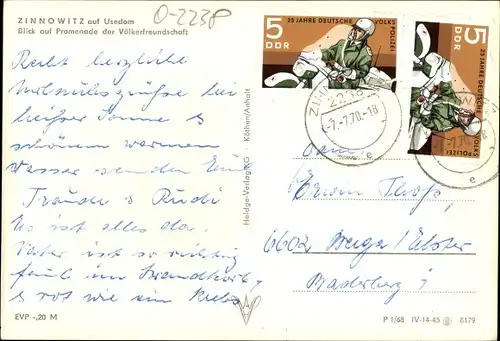 ZINNOWITZ auf Usedom
Blick auf Promenade der Völkerfreundschaft
O-2238
Recht herzliche
Urlaubsgrüsse bei
heißer Sonne &
schönem warmen
Wasser senden Euch
Traude & Rudi
Es ist alles da.
Vater ist so richtig
faul im Strandkorb,
& rot wie ein Krebs
EVP -,20 M
Heldge-Verlag KG · Köthen/Anhalt
5 DDR
25 JAHRE DEUTSCHE VOLKS POLIZEI
5 DDR
25 JAHRE DEUTSCHE VOLKS POLIZEI
2238
-7.-7.70.-18
e
Erwin
6602 Berga/Elster
P 1/68 IV-14-45 8179